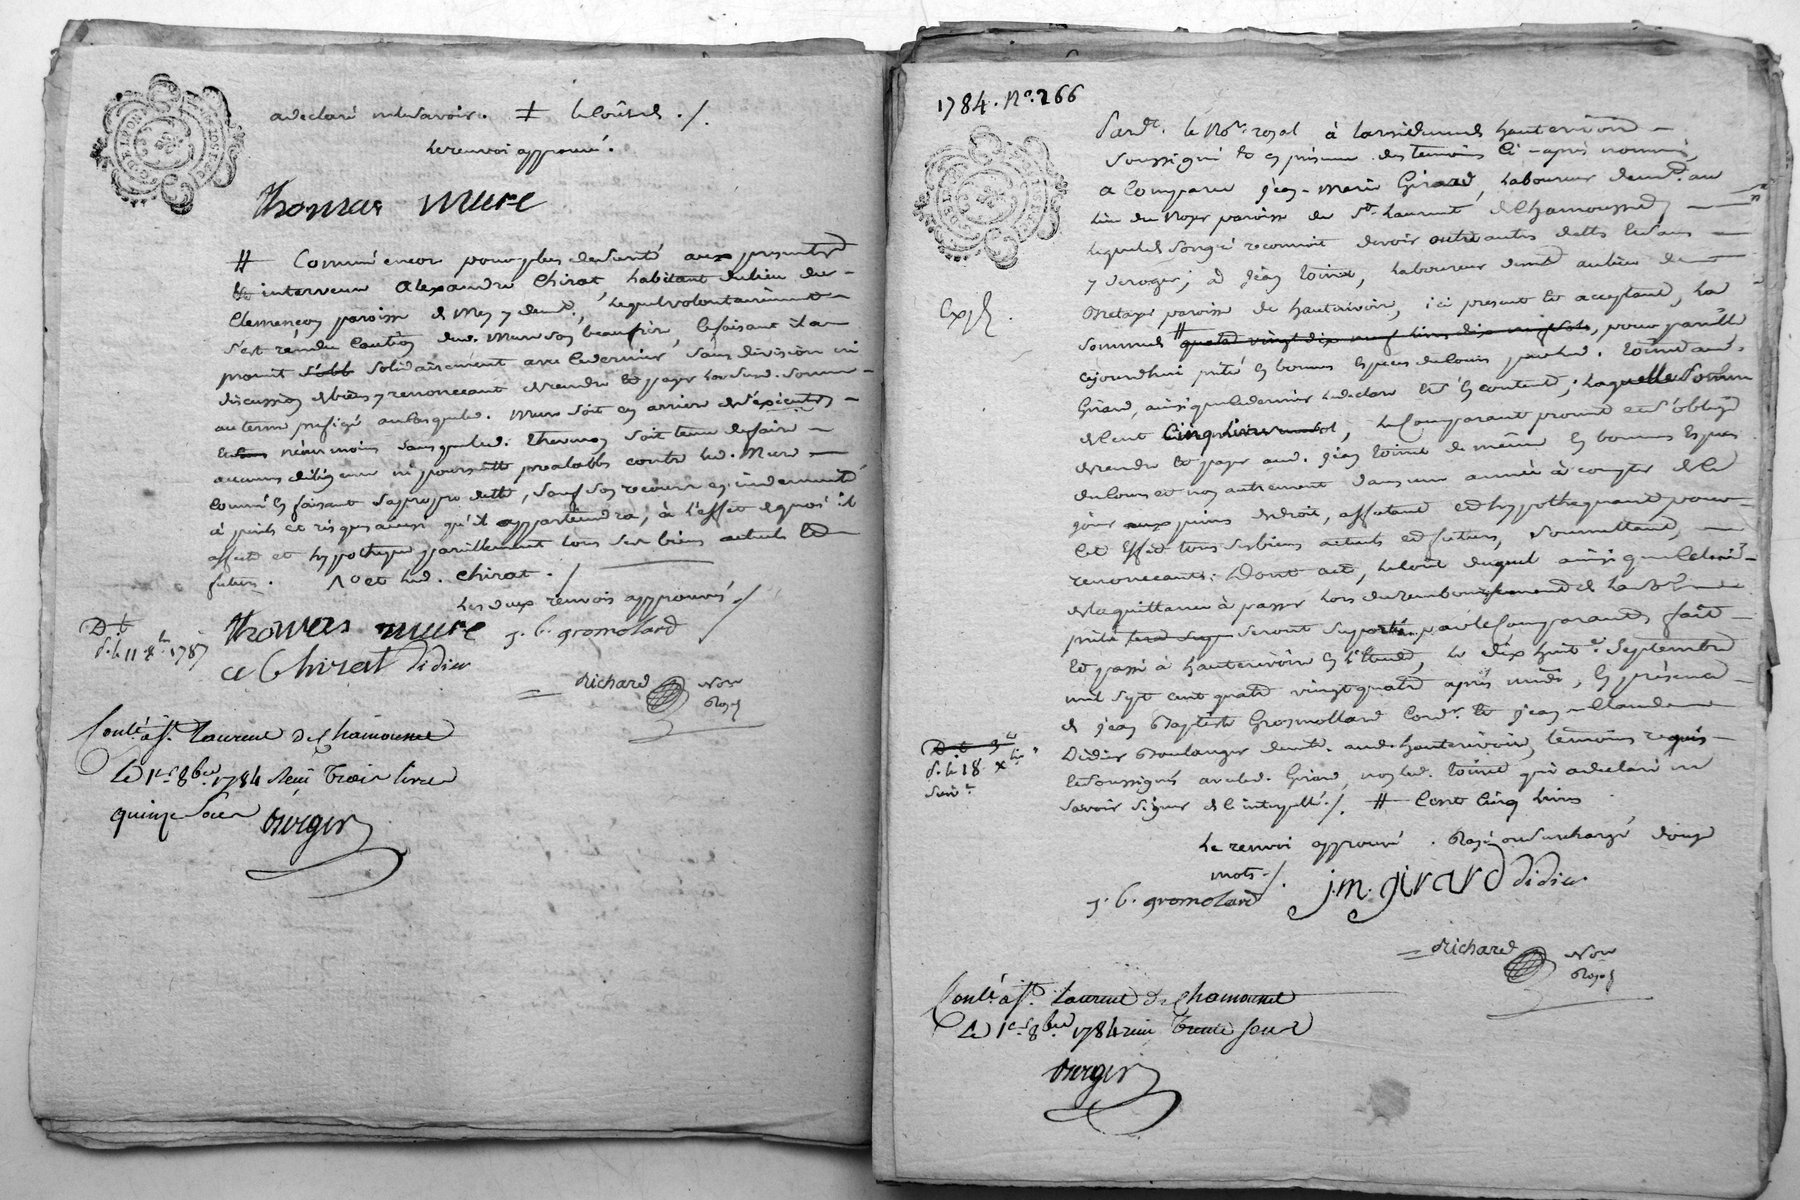 a declaré ne le savoir. # le coût &
le renvoi approuvé.
Thomas Mure
# Commé encor pour plus de sureté aux presentes
est intervenu Alexandre Chirat, habitant du lieu de
Clemençon paroisse de Meys y demt., lequel volontairement
s'est rendu caution dud. Mure son beaufrère, ce faisant il a
promit solidairement avec ce dernier, sans division ni
discussion de biens y renonceant de rendre et payer lad. somme
au terme prefigé auxquels led. Mure soit en arriere de s'executer
néanmoins sans que led. Thevenon soit tenu de faire
aucunes diligences ni poursuittes prealables contre led. Mure
comme en faisant sa propre dette, sauf son recours en indemnité
à perils et risques ainsi qu'il appartiendra, à l'effet de quoi il
affecte et hypotheque pareillement tous ses biens actuels et
futurs. et led. Chirat.
les deux renvois approuvés
Thomas Mure j. b. gromolard
a Chirat Didier
d. le 11 1787
Richard Nore Royal
Contlé à St. Laurent de Chamousset
Le 1er 8bre 1784 Reçu trois livres
quinze sols
Berger
1784. No. 266
Pardt. le Nore. royal à la residence d'hauterivoire
soussigné et en présence des temoins ci-après nommés,
a comparu Jean-Marie Girard, laboureur demt. au
lieu du Noyer paroisse de St. Laurent de Chamousset,
lequel de son gré reconnoit devoir outre autres dettes et sans
y deroger, à Jean Toinet, laboureur demt au lieu de
paroisse de hauterivoire, ici present et acceptant, la
somme de # quatre vingt dix neuf livres dix neuf sols, pour pareille
cejourdhui prêté en bonnes especes de cours par led. Toinet aud.
Girard, ainsi que ce dernier le declare et s'en contente; laquelle somme
de cent cinq livres, le comparant promet et s'oblige
de rendre et payer aud. Jean Toinet de même en bonnes especes
de cours et non autrement dans un année à compter de ce
jour aux peines de droit, affectant et hypothequant pour
cet effet tous ses biens actuels et futurs, soumettant,
renonceant: Dont acte, le coût duquel ainsi que celui
de la quittance à passer lors du remboursement de la somme
prêtée seront suportés par le comparant, fait
et passé à hauterivoire en l'etude, le dix huit septembre
mil sept cent quatre vingt quatre après midi, en présence
de Jean Baptiste Gromollard cordr. et Jean Claude
Didier Boulanger demt. aud. hauterivoire, temoins requis
et soussignés avec led. Girard, non led. Toinet qui a declaré ne
savoir signer de ce interpellé. # Cent Cinq livres
Exp
d. le 18 Xbre
suivt
Le renvoi approuvé. Rayé ou surchargé douze
mots.
j. b. gromolard j.m. girard didier
Richard Nore Royal
Contlé à St. Laurent de Chamousset
Le 1er 8bre 1784 reçu trente sous
Berger